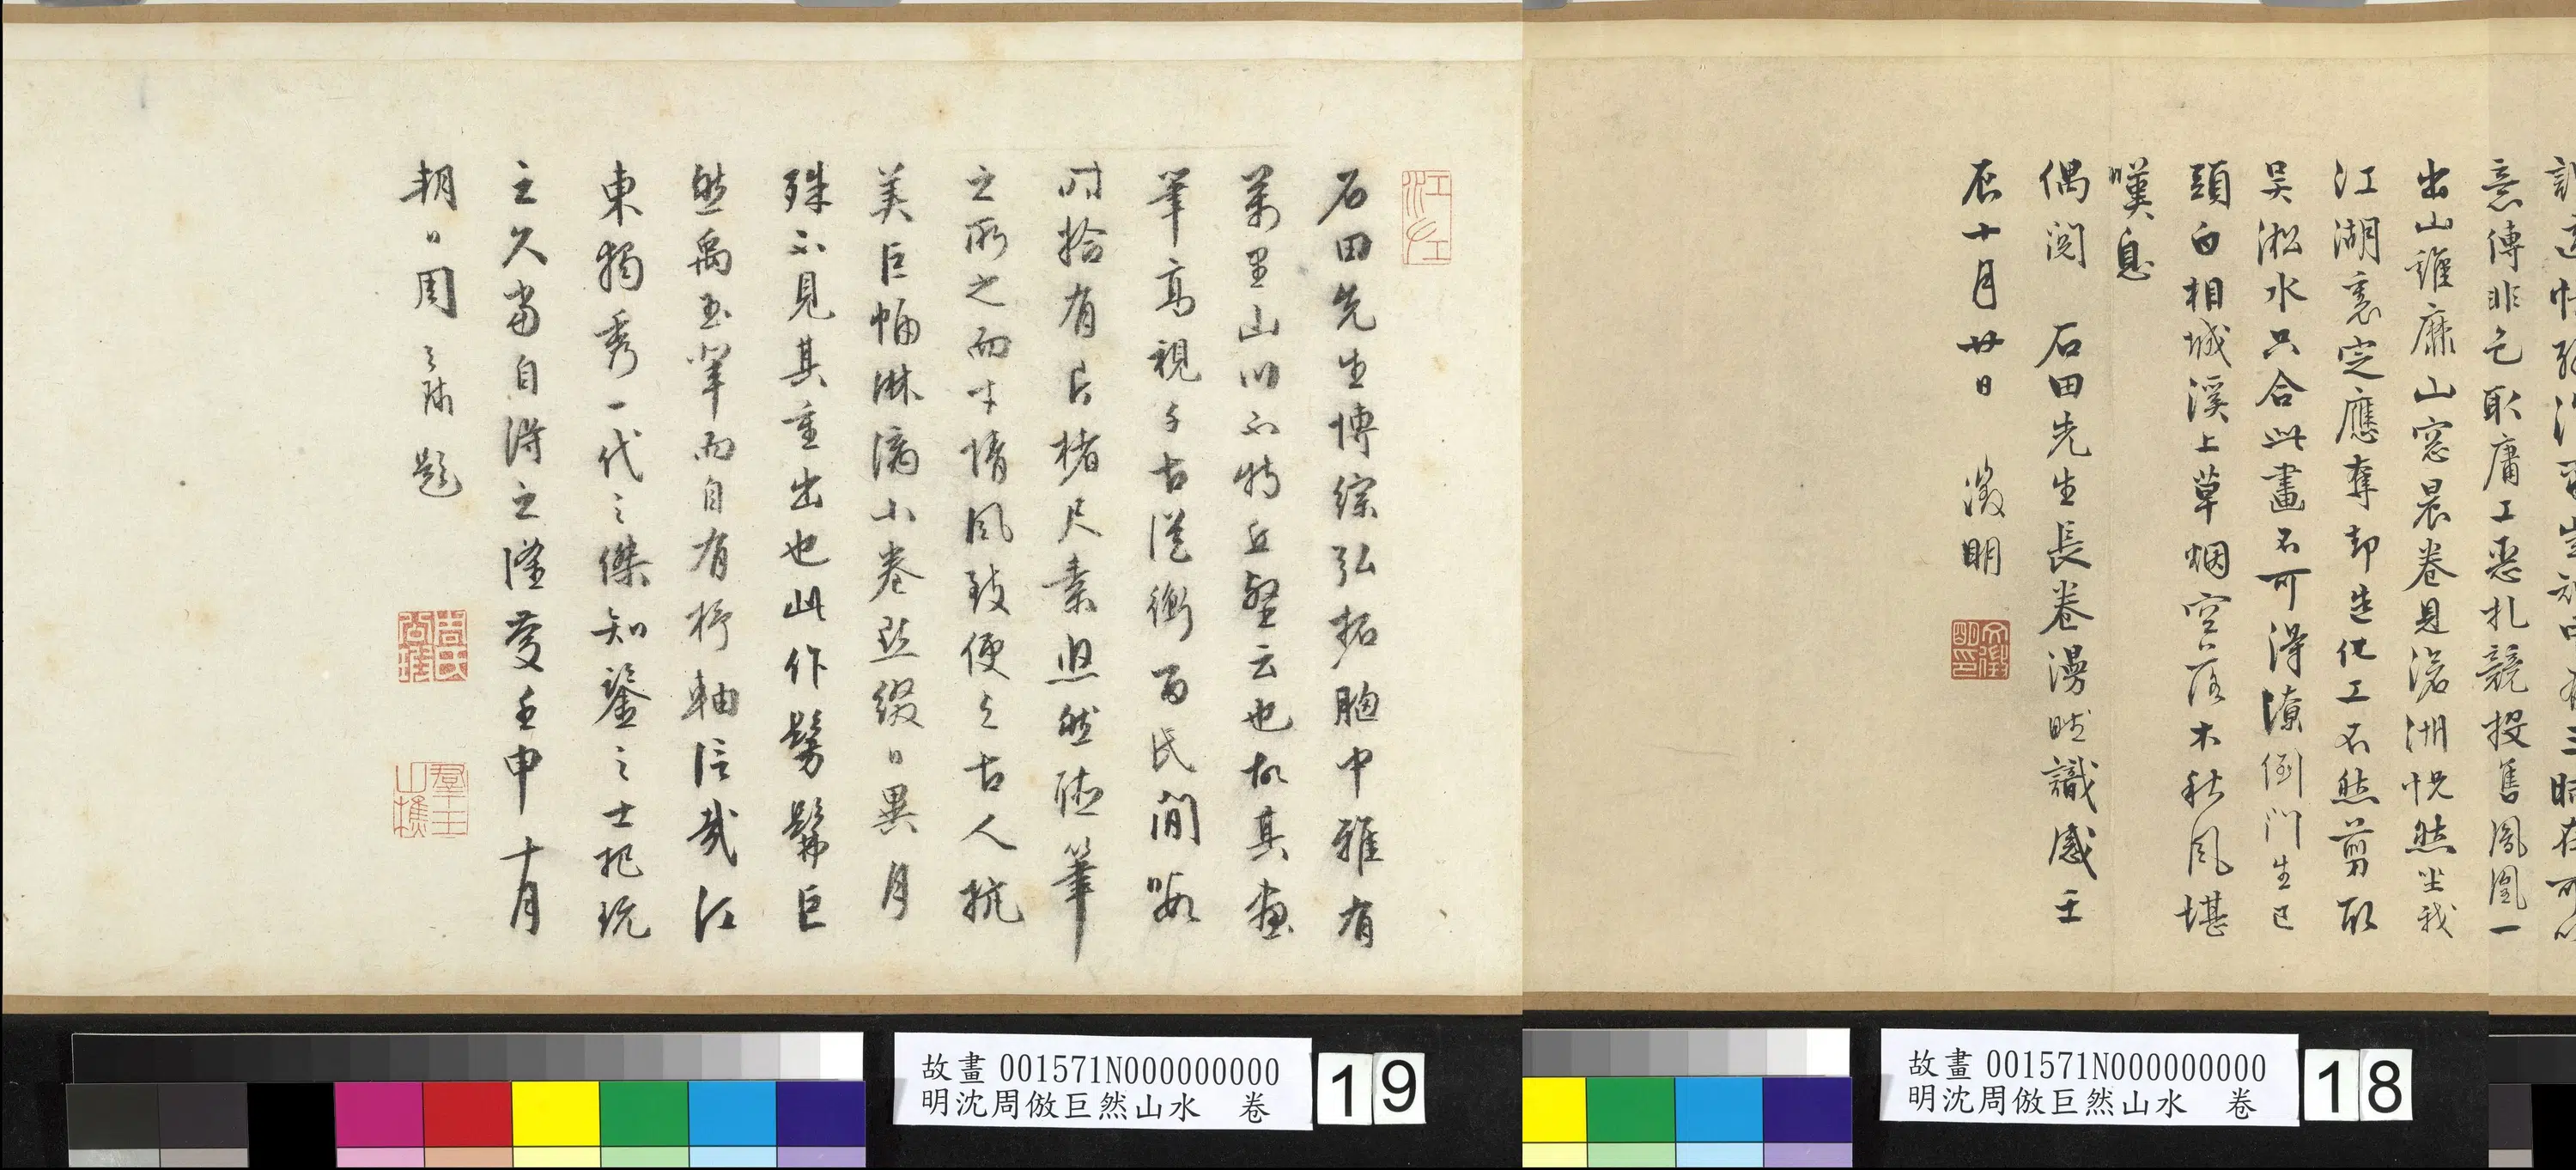 意傳非乞耶庸工惡札競投售鳳凰一
出山雞靡山窓晨卷見滄洲怳然坐我
江湖裏定應奪却造化工不然剪取
吴淞水只合此畫不可得潦倒門生已
頭白相城溪上草烟空落木秋風堪
嘆息
偶閱 石田先生長卷漫賦識感壬
辰十月廿日 徵明
江左
石田先生博綜弘拓胸中雅有
萬里山川不特丘壑云也故其畫
筆高視千古從衡百氏間
時拾有片楮尺素
之而才情風致便與古人抗
美巨幅淋漓小卷點綴日異月
殊不見其重出也此作髣髴巨
然禹玉輩而自有杼軸信哉江
東獨秀一代之傑知鑒之士把玩
之久當自得之漫爰壬申十月
朔日周之冕題
群玉山樵
故畫 001571N000000000
明沈周倣巨然山水 卷
19
故畫 001571N000000000
明沈周倣巨然山水 卷
18